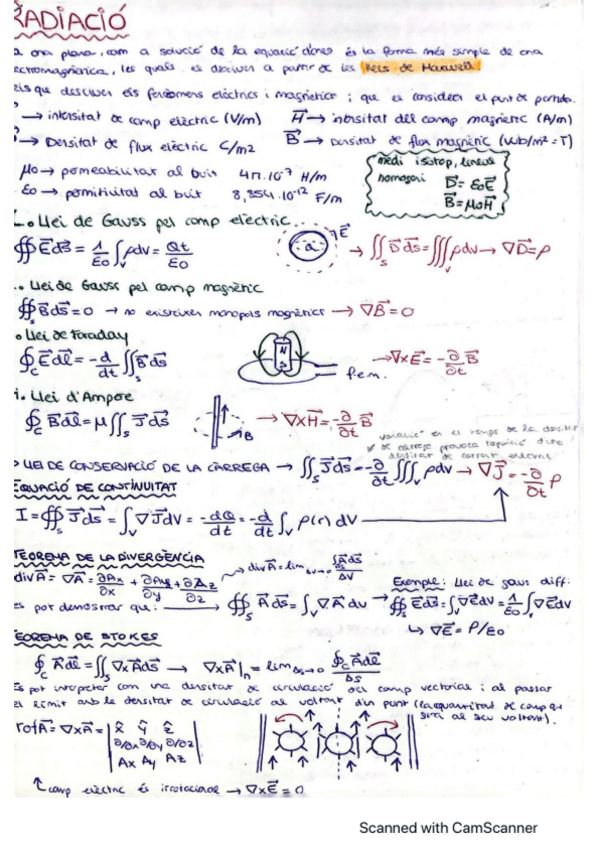 RADIACIÓ
ona plana, com a solució de la equació d'ones és la forma més simple de ona
electromagnètica, les quals es deriven a partir de les lleis de Maxwell
lleis que descriuen els fenòmens elèctrics i magnètics i que es considera el punt de partida.
→ intensitat de camp elèctric (V/m) H⃗ → intensitat del camp magnètic (A/m)
→ Densitat de flux elèctric C/m2 B⃗ → Densitat de flux magnètic (Wb/m² = T)
μ₀ → permeabilitat al buit 4π·10⁻⁷ H/m
ε₀ → permitivitat al buit 8,854·10⁻¹² F/m
medi isòtop, lineal
homogeni D⃗ = ε₀E⃗
B⃗ = μ₀H⃗
Llei de Gauss pel camp elèctric
∯ₛ E⃗ds⃗ = 1/ε₀ ∫ᵥ ρdv = Qt/ε₀ E⃗ → ∬ₛ D⃗ds⃗ = ∭ᵥ ρdv → ∇D⃗ = ρ
Llei de Gauss pel camp magnètic
∯ₛ B⃗ds⃗ = 0 → no existeixen monopols magnètics → ∇B⃗ = 0
Llei de Faraday
∮c E⃗dl⃗ = -d/dt ∬ₛ B⃗ds⃗ N f.e.m. → ∇×E⃗ = -∂/∂t B⃗
Llei d'Ampere
∮c B⃗dl⃗ = μ ∬ₛ J⃗ds⃗ B → ∇×H⃗ = -∂/∂t B⃗
variació en el temps de la densitat
de càrrega provoca l'aparició d'una
densitat de corrent
LLEI DE CONSERVACIÓ DE LA CÀRREGA → ∬ₛ J⃗ds⃗ = -∂/∂t ∭ᵥ ρdv → ∇J⃗ = -∂/∂t ρ
EQUACIÓ DE CONTINUITAT
I = ∯ₛ J⃗ds⃗ = ∫ᵥ ∇J⃗dV = -dQ/dt = -d/dt ∫ᵥ ρ(r) dV
TEOREMA DE LA DIVERGÈNCIA
divA⃗ = ∇A⃗ = ∂Ax/∂x + ∂Ay/∂y + ∂Az/∂z → divA⃗ = lim Δv→0 ∫A⃗ds⃗/ΔV
Exemple: Llei de Gauss diff:
Es pot demostrar que: → ∯ₛ A⃗ds⃗ = ∫ᵥ ∇A⃗ dv → ∯ₛ E⃗ds⃗ = ∫ᵥ ∇E⃗dv = 1/ε₀ ∫ᵥ ∇E⃗dv
↳ ∇E⃗ = ρ/ε₀
TEOREMA DE STOKES
∮c A⃗dl⃗ = ∬ₛ ∇×A⃗ds⃗ → ∇×A⃗|n = lim Δs→0 ∮c A⃗dl⃗/Δs
Es pot interpretar com una densitat de circulació del camp vectorial i al passar
el límit amb la densitat de circulació al voltant d'un punt (la quantitat de camp que
gira al seu voltant).
rotA⃗ = ∇×A⃗ = | x̂ ŷ ẑ
∂/∂x ∂/∂y ∂/∂z
Ax Ay Az |
↑ camp elèctric és irrotacional → ∇×E⃗ = 0
Scanned with CamScanner